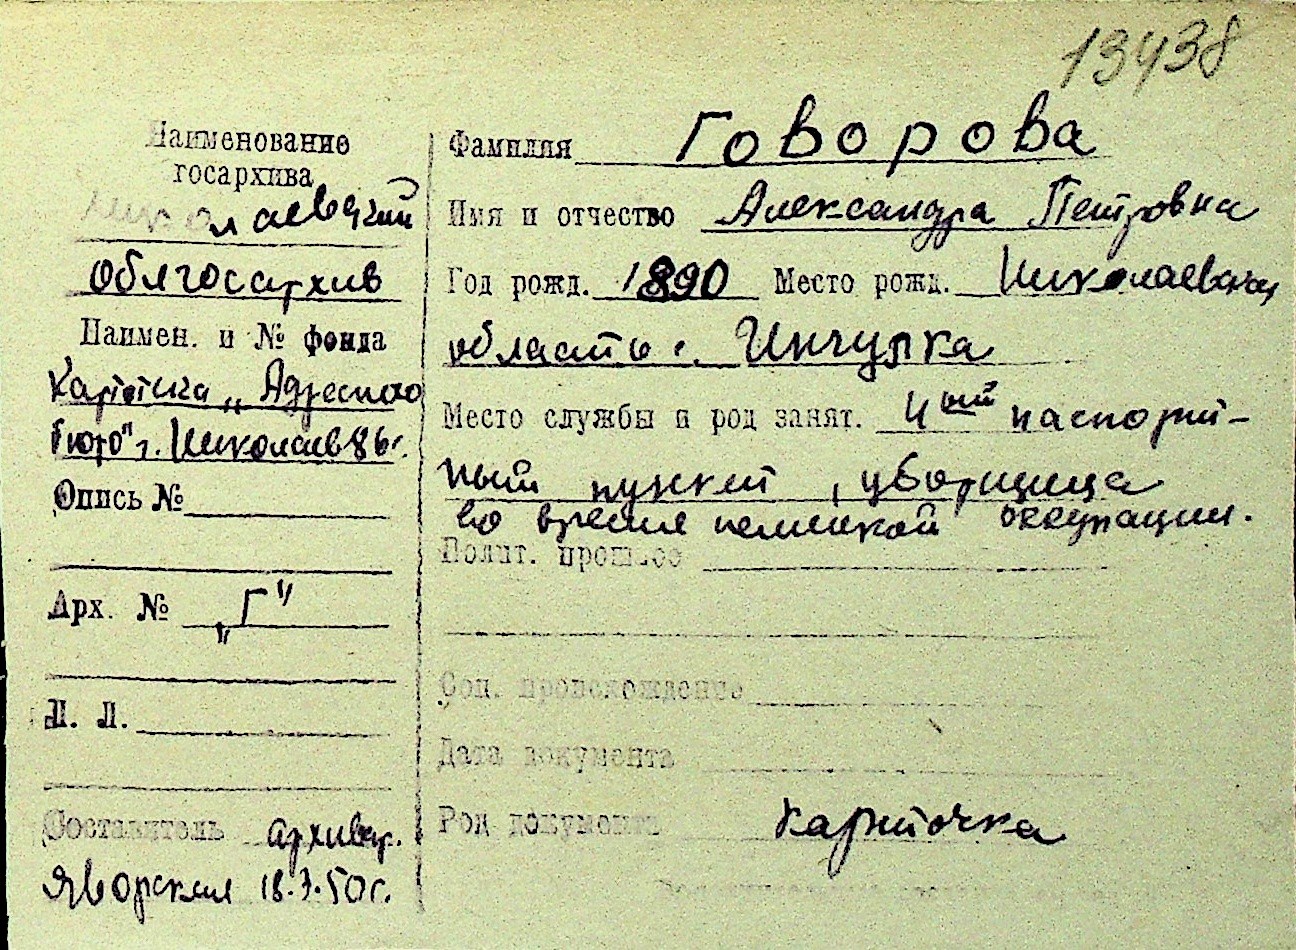 13438
Наименование
госархива
Николаевский
облгосархив
Наимен. и № фонда
Картотека „Адресного
бюро" г. Николаев 86г.
Опись №
Арх. № „Г"
Л. Л.
Составитель архивар.
Яворская 18.3.50г.
Фамилия Говорова
Имя и отчество Александра Петровна
Год рожд. 1890 Место рожд. Николаевская
область с. Инчурка
Место службы и род занят. 4ый паспорт-
ный пункт, уборщица
во время немецкой оккупации.
Полит. прошлое
Соц. происхождение
Дата документа
Род документа карточка